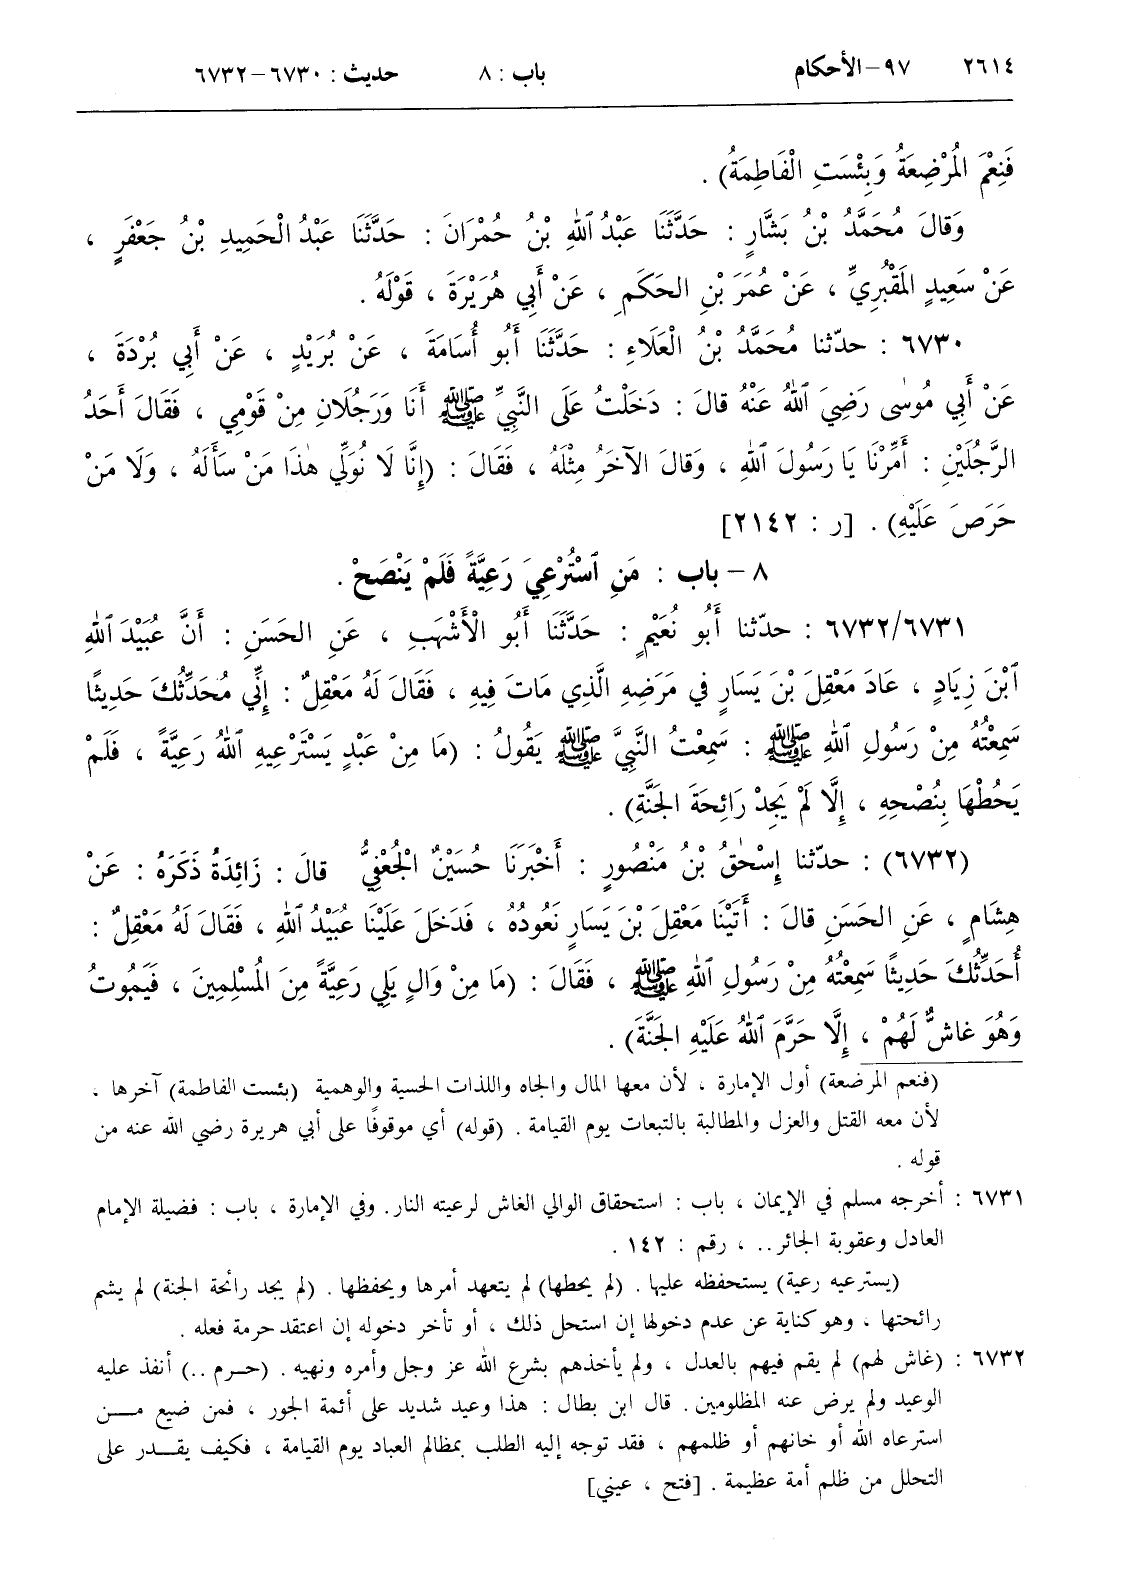 ٢٦١٤ ٩٧-الأحكام باب : ٨ حديث : ٦٧٣٠-٦٧٣٢
فَنِعْمَ المُرْضِعَةُ وَبِئْسَتِ الْفَاطِمَةُ) .
وَقالَ مُحَمَّدُ بْنُ بَشَّارٍ : حَدَّثَنَا عَبْدُ ٱللهِ بْنُ حُمْرَانَ : حَدَّثَنَا عَبْدُ الْحَمِيدِ بْنُ جَعْفَرٍ ،
عَنْ سَعِيدٍ المَقْبُرِيِّ ، عَنْ عُمَرَ بْنِ الحَكَمِ ، عَنْ أَبِي هُرَيْرَةَ ، قَوْلَهُ .
٦٧٣٠ : حدّثنا مُحَمَّدُ بْنُ الْعَلَاءِ : حَدَّثَنَا أَبُو أُسَامَةَ ، عَنْ بُرَيْدٍ ، عَنْ أَبِي بُرْدَةَ ،
عَنْ أَبِي مُوسٰى رَضِيَ ٱللهُ عَنْهُ قالَ : دَخَلْتُ عَلَى النَّبِيِّ ﷺ أَنَا وَرَجُلَانِ مِنْ قَوْمِي ، فَقَالَ أَحَدُ
الرَّجُلَيْنِ : أَمِّرْنَا يَا رَسُولَ ٱللهِ ، وَقالَ الآخَرُ مِثْلَهُ ، فَقَالَ : (إِنَّا لَا نُوَلِّي هٰذَا مَنْ سَأَلَهُ ، وَلَا مَنْ
حَرَصَ عَلَيْهِ) . [ر : ٢١٤٢]
٨ – باب : مَنِ ٱسْتُرْعِيَ رَعِيَّةً فَلَمْ يَنْصَحْ .
٦٧٣٢/٦٧٣١ : حدّثنا أَبُو نُعَيْمٍ : حَدَّثَنَا أَبُو الْأَشْهَبِ ، عَنِ الحَسَنِ : أَنَّ عُبَيْدَ ٱللهِ
ٱبْنَ زِيَادٍ ، عَادَ مَعْقِلَ بْنَ يَسَارٍ في مَرَضِهِ الَّذِي مَاتَ فِيهِ ، فَقَالَ لَهُ مَعْقِلٌ : إِنِّي مُحَدِّثُكَ حَدِيثًا
سَمِعْتُهُ مِنْ رَسُولِ ٱللهِ ﷺ : سَمِعْتُ النَّبِيَّ ﷺ يَقُولُ : (مَا مِنْ عَبْدٍ يَسْتَرْعِيهِ ٱللهُ رَعِيَّةً ، فَلَمْ
يَحُطْهَا بِنُصْحِهِ ، إِلَّا لَمْ يَجِدْ رَائِحَةَ الجَنَّةِ) .
(٦٧٣٢) : حدّثنا إِسْحٰقُ بْنُ مَنْصُورٍ : أَخْبَرَنَا حُسَيْنٌ الْجُعْفِيُّ قالَ : زَائِدَةُ ذَكَرَهُ : عَنْ
هِشَامٍ ، عَنِ الحَسَنِ قالَ : أَتَيْنَا مَعْقِلَ بْنَ يَسَارٍ نَعُودُهُ ، فَدَخَلَ عَلَيْنَا عُبَيْدُ ٱللهِ ، فَقَالَ لَهُ مَعْقِلٌ :
أُحَدِّثُكَ حَدِيثًا سَمِعْتُهُ مِنْ رَسُولِ ٱللهِ ﷺ ، فَقَالَ : (مَا مِنْ وَالٍ يَلِي رَعِيَّةً مِنَ المُسْلِمِينَ ، فَيَمُوتُ
وَهُوَ غاشٌّ لَهُمْ ، إِلَّا حَرَّمَ ٱللهُ عَلَيْهِ الجَنَّةَ) .
(فنعم المرضعة) أول الإمارة ، لأن معها المال والجاه واللذات الحسية والوهمية (بئست الفاطمة) آخرها ،
لأن معه القتل والعزل والمطالبة بالتبعات يوم القيامة . (قوله) أي موقوفًا على أبي هريرة رضي الله عنه من
قوله .
٦٧٣١ : أخرجه مسلم في الإيمان ، باب : استحقاق الوالي الغاش لرعيته النار. وفي الإمارة ، باب : فضيلة الإمام
العادل وعقوبة الجائر.. ، رقم : ١٤٢ .
(يسترعيه رعية) يستحفظه عليها . (لم يحطها) لم يتعهد أمرها ويحفظها . (لم يجد رائحة الجنة) لم يشم
رائحتها ، وهو كناية عن عدم دخولها إن استحل ذلك ، أو تأخر دخوله إن اعتقد حرمة فعله .
٦٧٣٢ : (غاش لهم) لم يقم فيهم بالعدل ، ولم يأخذهم بشرع الله عز وجل وأمره ونهيه . (حـرم ..) أنفذ عليه
الوعيد ولم يرض عنه المظلومين . قال ابن بطال : هذا وعيد شديد على أئمة الجور ، فمن ضيع مـــن
استرعاه الله أو خانهم أو ظلمهم ، فقد توجه إليه الطلب بمظالم العباد يوم القيامة ، فكيف يقــدر على
التحلل من ظلم أمة عظيمة . [فتح ، عيني]